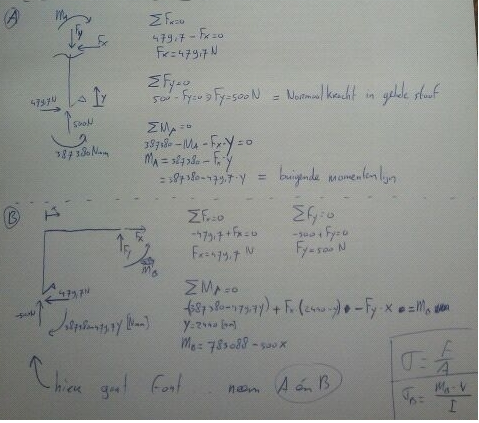 A
M_A
F_y
F_x
479,7N
y
500N
387380Nmm
ΣF_x=0
479,7 - F_x=0
F_x=479,7N
ΣF_y=0
500 - F_y=0 F_y=500N = Normaalkracht in gehele staaf
ΣM_A=0
387380 - M_A - F_x·y=0
M_A=387380 - F_x·y
=387380 - 479,7·y = buigende momentenlijn
B
x
F_x
F_y
M_B
A
479,7N
500N
387380-479,7y [Nmm]
ΣF_x=0
-479,7+F_x=0
F_x=479,7 N
ΣF_y=0
-500+F_y=0
F_y=500N
ΣM_A=0
y=2440 [mm]
M_B= 783088 - 500x
hier gaat Fout
A én B
σ = F/A
σ_B =
I